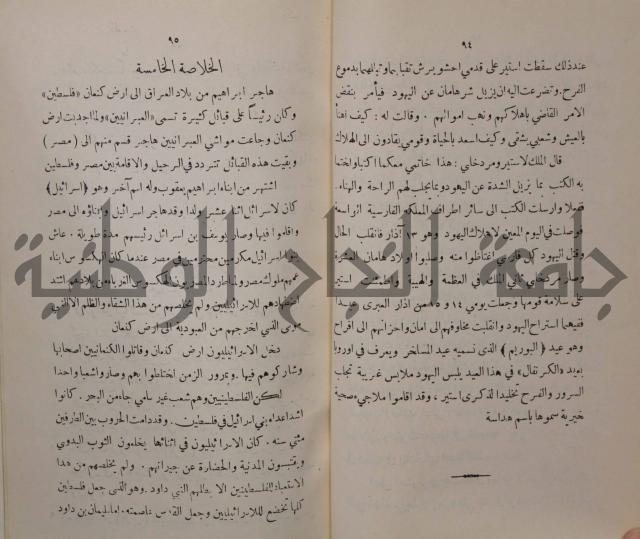 ٩٤
عند ذلك سقطت استير على قدمي احشويرش تقبلهما وتبللهما بدموع
الفرح. وتضرعت اليه ان يزيل شر هامان عن اليهود فيأمر بنقض
الامر القاضي باهلاكهم ونهب اموالهم. وقالت له: كيف اهنأ
بالعيش وشعبي يشقى وكيف اسعد بالحياة وقومي يقادون الى الهلاك
قال الملك لاستير ومردخاي: هذا خاتمي معكما اكتبا واختما
به الكتب بما يزيل الشدة عن اليهود ويجلب لهم الراحة والهناء.
ففعلا وارسلت الكتب الى سائر اطراف المملكة الفارسية
فوصلت في اليوم المعين لاهلاك اليهود وهو ١٣ آذار فانقلب الحال
وقتل اليهود كل اغتاظوا منه وصلبوا اولاد هامان العشرة
وصار مردخاي ثاني الملك في العظمة والهيبة واطمأنت استير
على سلامة قومها وجعلت يومي ١٤ و ١٥ من آذار العبري عيداً
ففيهما استراح اليهود وانقلبت مخاوفهم الى امان واحزانهم الى افراح
وهو عيد (البوريم) الذي نسميه عيد المساخر ويعرف في اوروبا
بعيد «الكرنفال» في هذا العيد يلبس اليهود ملابس غريبة تجلب
السرور والفرح تخليداً لذكرى استير، وقد اقاموا ملاجئ صحية
خيرية سموها باسم هداسة
٩٥
الخلاصة الخامسة
هاجر ابراهيم من بلاد العراق الى ارض كنعان «فلسطين»
وكان رئيساً على قبائل كثيرة تسمى «العبرانيين» ولما اجدبت ارض
كنعان وجاعت مواشي العبرانيين هاجر قسم منهم الى (مصر)
وبقيت هذه القبائل تتردد في الرحيل والاقامة بين مصر وفلسطين
اشتهر من ابناء ابراهيم يعقوب وله اسم آخر وهو (اسرائيل)
كان لاسرائيل اثنا عشر ولدا وقد هاجر اسرائيل وابناؤه الى مصر
واقاموا فيها وصار يوسف بن اسرائيل رئيسهم مدة طويلة، عاش
بنو اسرائيل مكرمين محترمين في مصر عندما كان الهكسوس ابناء
عمهم ملوك مصر ولما طرد المصريون الهكسوس الغرباء من بلادهم اشتد
اضطهادهم للاسرائيليين ولم يخلصهم من هذا الشقاء والظلم الا النبي
موسى الذي اخرجهم من العبودية الى ارض كنعان
دخل الاسرائيليون ارض كنعان وقاتلوا الكنعانيين اصحابها
وشاركوهم فيها. وبمرور الزمن اختلطوا بهم وصاروا شعبا واحدا
لكن الفلسطينيين وهم شعب غير سامي جاء من البحر. كانوا
اشد اعداء بني اسرائيل في فلسطين. وقد دامت الحروب بين الطرفين
مئتي سنة. كان الاسرائيليون في اثنائها يخلعون الثوب البدوي
ويقتبسون المدنية والحضارة عن جيرانهم. ولم يخلصهم من هذا
الاستعباد الفلسطينيين الا بطلهم النبي داود. وهو الذي جعل فلسطين
كلها تخضع للاسرائيليين وجعل القدس عاصمته. اما سليمان بن داود
جامعة النجاح الوطنية